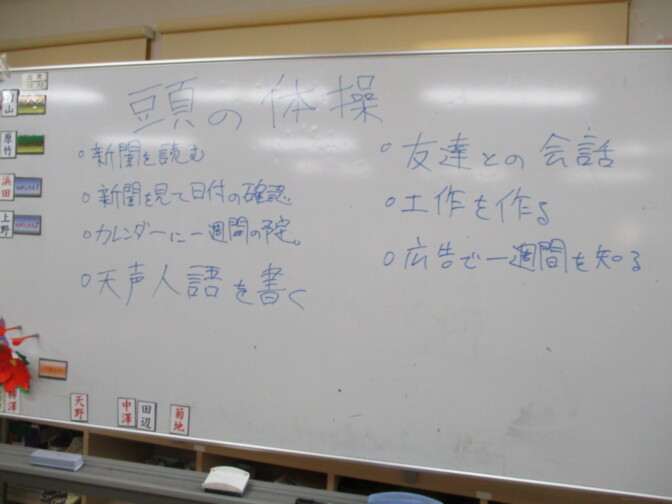 頭の体操
○新聞を読む
○新聞を見て日付の確認。
○カレンダーに一週間の予定。
○天声人語を書く
○友達との会話
○工作を作る
○広告で一週間を知る
原竹
浜田
上野
天野
中澤
田辺
菊地